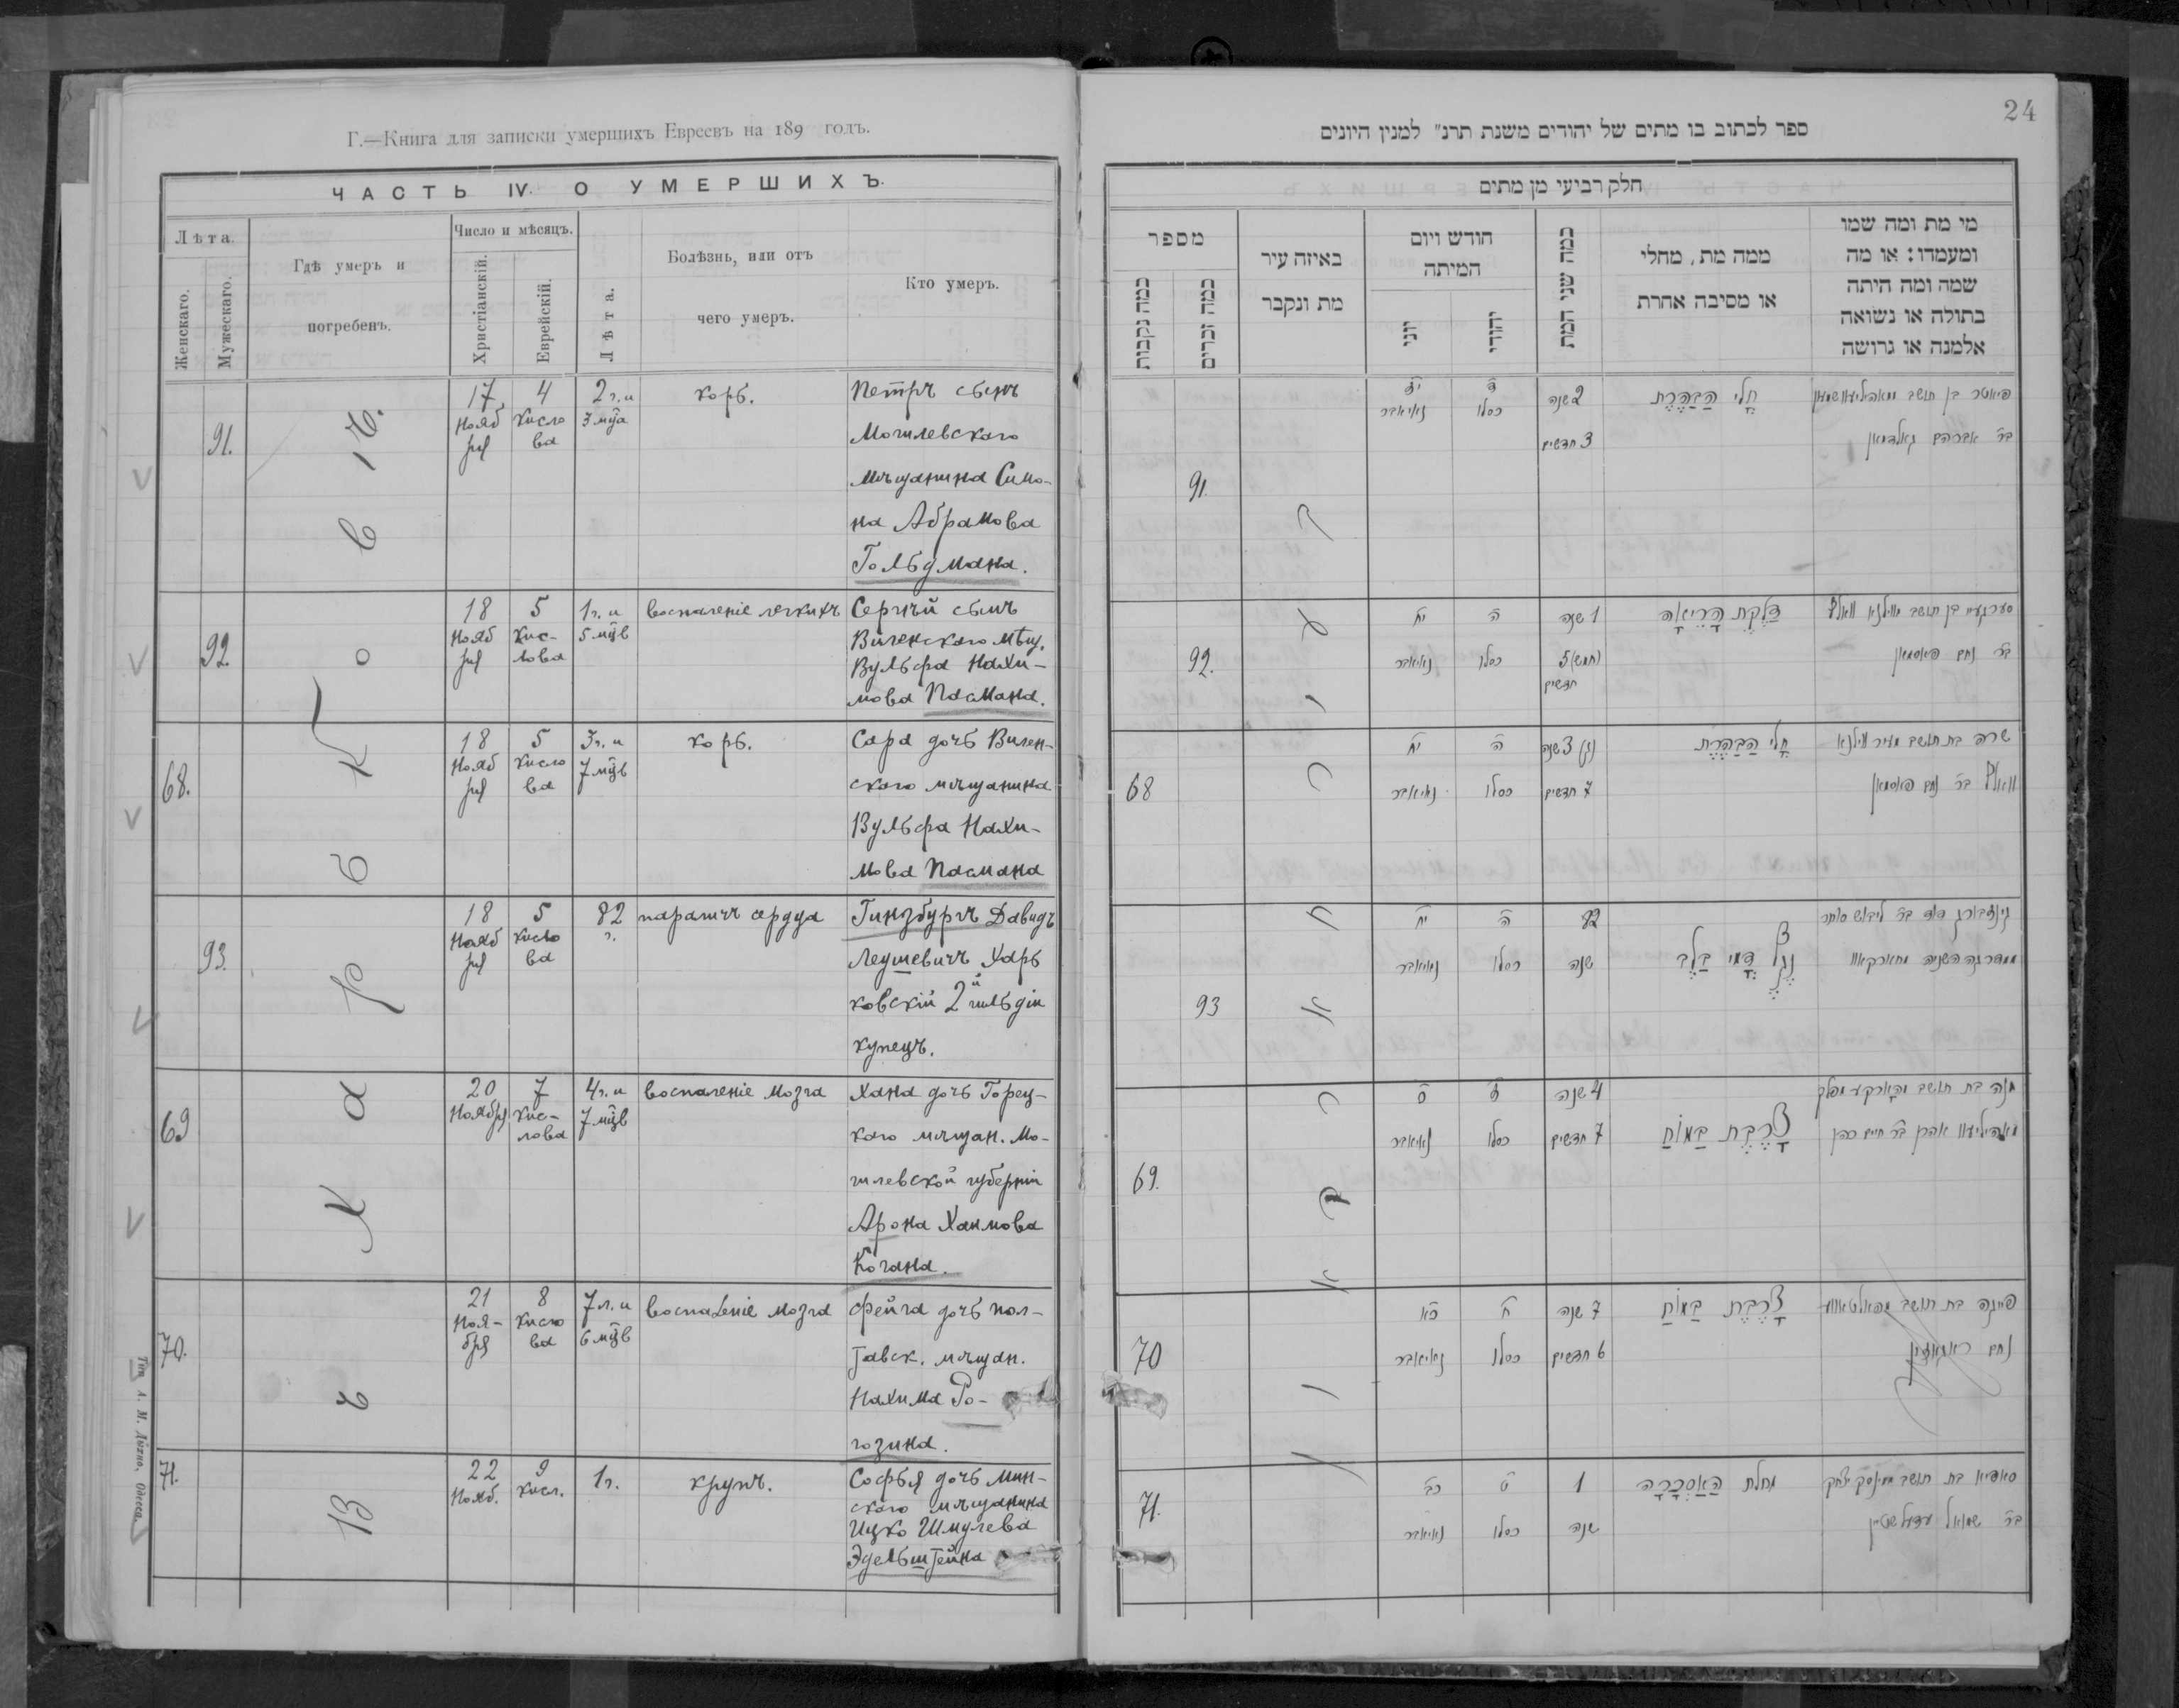 Г.—Книга для записки умершихъ Евреевъ на 189 годъ.
ЧАСТЬ IV. О УМЕРШИХЪ.
Лѣта.
Женскаго.
Мужескаго.
Гдѣ умеръ и
погребенъ.
Число и мѣсяцъ.
Христіанскій.
Еврейскій.
Лѣта.
Болѣзнь, или отъ
чего умеръ.
Кто умеръ.
Въ Харьковѣ
91.
17
Нояб
ря
4
Кисле
ва
2 г. и
3 мца
корь.
Петръ сынъ
Могилевскаго
мѣщанина Симо-
на Абрамова
Гольдмана.
92.
18
Нояб
ря
5
Кис-
лева
1 г. и
5 мцв
воспаленіе легкихъ
Сергѣй сынъ
Виленскаго мѣщ.
Вульфа Нахи-
мова Пасмана.
68.
18
Нояб
ря
5
Кисле
ва
3 г. и
7 мцв
корь.
Сара дочь Вилен-
скаго мѣщанина
Вульфа Нахи-
мова Пасмана
93.
18
Нояб
ря
5
Кисле
ва
82
г.
параличъ сердца
Гинзбургъ Давидъ
Леушевичъ Харь
ковскій 2й гильдіи
купецъ.
69
20
Ноября
7
Кис-
лева
4 г. и
7 мцв
воспаленіе мозга
Хана дочь Горец-
каго мѣщан. Мо-
гилевской губерніи
Арона Хаимова
Когана.
70.
21
Ноя-
бря
8
Кисле
ва
7 л. и
6 мцв
воспаленіе мозга
Фейга дочь Пол-
тавск. мѣщан.
Нахима Ро-
гозина.
71.
22
Нояб.
9
Кисл.
1 г.
крупъ.
Софья дочь Мин-
скаго мѣщанина
Ицко Шмулева
Эдельштейна
Тип. А. М. Дыхно, Одесса.
24
ספר לכתוב בו מתים של יהודים משנת תרנ״ למנין היונים
חלק רביעי מן מתים
מספר
כמה נקבות
כמה זכרים
באיזה עיר
מת ונקבר
חודש ויום
המיתה
יוני
יהודי
כמה שני המת
ממה מת, מחלי
או מסיבה אחרת
מי מת ומה שמו
ומעמדו: או מה
שמה ומה היתה
בתולה או נשואה
אלמנה או גרושה
91.
יז
נאיאבר
ד
כסלו
2 שנה
3 חדשים
חֳלִי הַבַּהֶרֶת
פיאטר בן תושב מאהיליעוו שמעון
בר אברהם גאלדמאן
92.
יח
נאיאבר
ה
כסלו
1 שנה
5 (חמש)
חדשים
דַלֶקֶת הָרֵיאָה
סערגעיי בן תושב ווילנא וואלף
בר נחם פאסמאן
68
יח
נאיאבר
ה
כסלו
3 שנה
7 חדשים
חֳלִי הַבַּהֶרֶת
שרה בת תושב מעיר ווילנא
וואלף בר נחם פאסמאן
93
יח
נאיאבר
ה
כסלו
82
שנה
גינזבורג דוד בר ליבוש סוחר
ממדרגה השניה מחארקאוו
69.
כ
נאיאבר
ז
כסלו
4 שנה
7 חדשים
צָרֶבֶת בַּמוֹחַ
מאהיליעוו אהרן בר חיים כהן
70
כא
נאיאבר
ח
כסלו
7 שנה
6 חדשים
צָרֶבֶת בַּמוֹחַ
פייגה בת תושב מפאלטאווע
נחם ראגאזין
71.
כב
נאיאבר
ט
כסלו
1
שנה
מחלת הָאַסְכָּרָה
סאפיא בת תושב מינסק יצחק
בר שמואל עדעלשטיין